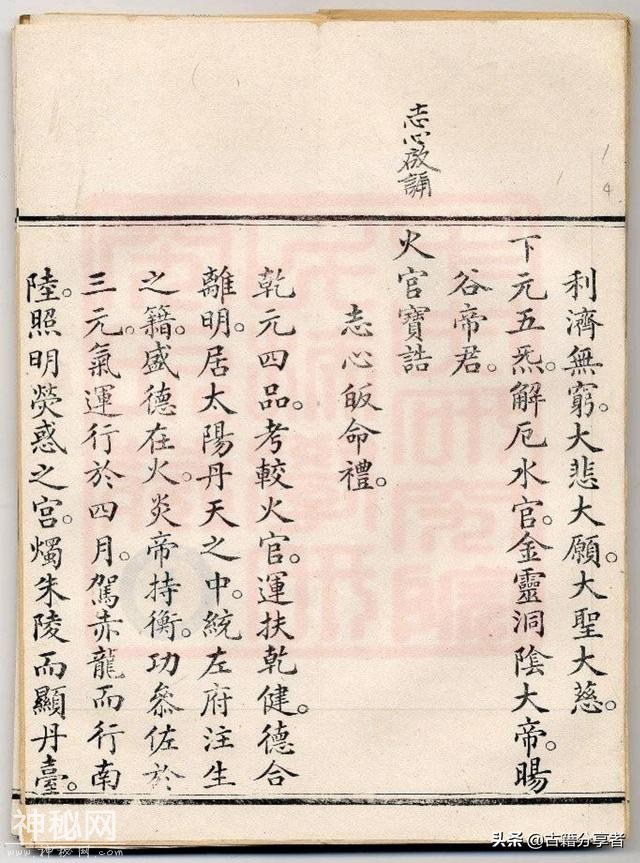 志心啟誦
利濟無窮。大悲大願。大聖大慈。
下元五炁。解厄水官。金靈洞陰大帝。暘
谷帝君。
火官寶誥
志心皈命禮。
乾元四品。考較火官。運扶乾健。德合
離明。居太陽丹天之中。統左府注生
之籍。盛德在火。炎帝持衡。功參佐於
三元。氣運行於四月。駕赤龍而行南
陸。照明熒惑之宮。燭朱陵而顯丹臺。
4
神秘网
www.神秘网.com
头条@古籍分享者